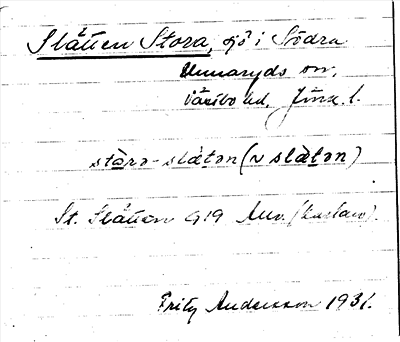 Slätten Stora, sjö i Södra
Unnaryds sn,
Västbo hd, Jönk. l.
stora-slätən (~ slätən)
St. Slätten G19 Unn. (kartan).
Fritz Andersson 1931.